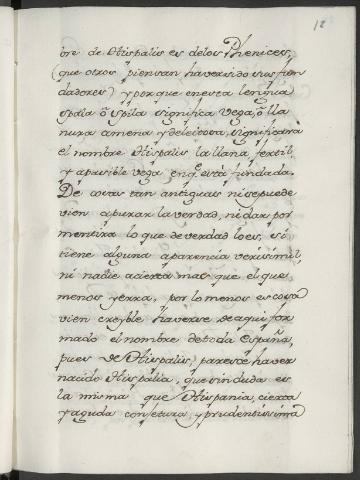 12
bre de Hispalis es delos Phenices,
(que otros piensan haver sido sus fun
dadores) y porque en esta lengua
spala ô spila significa vega, ô lla
nura amena y deleitosa, significara
el nombre Hispalis la llana, fertil
y apasible vega enq.e está fundada.
De cosas tan antiguas ni se puede
vien apurar la verdad, ni dar por
mentira lo que de verdad lo es, si
tiene alguna aparencia verisimil,
ni nadie acierta mas que el que
menos yerra, por lo menos es cosa
vien creyble haverse de aqui for
mado el nombre de toda España,
pues de Hispalis, parese haver
nacido Hispalia, que sin duda es
la misma que Hispania, cierta
y aguda conjetura, y prudentissima